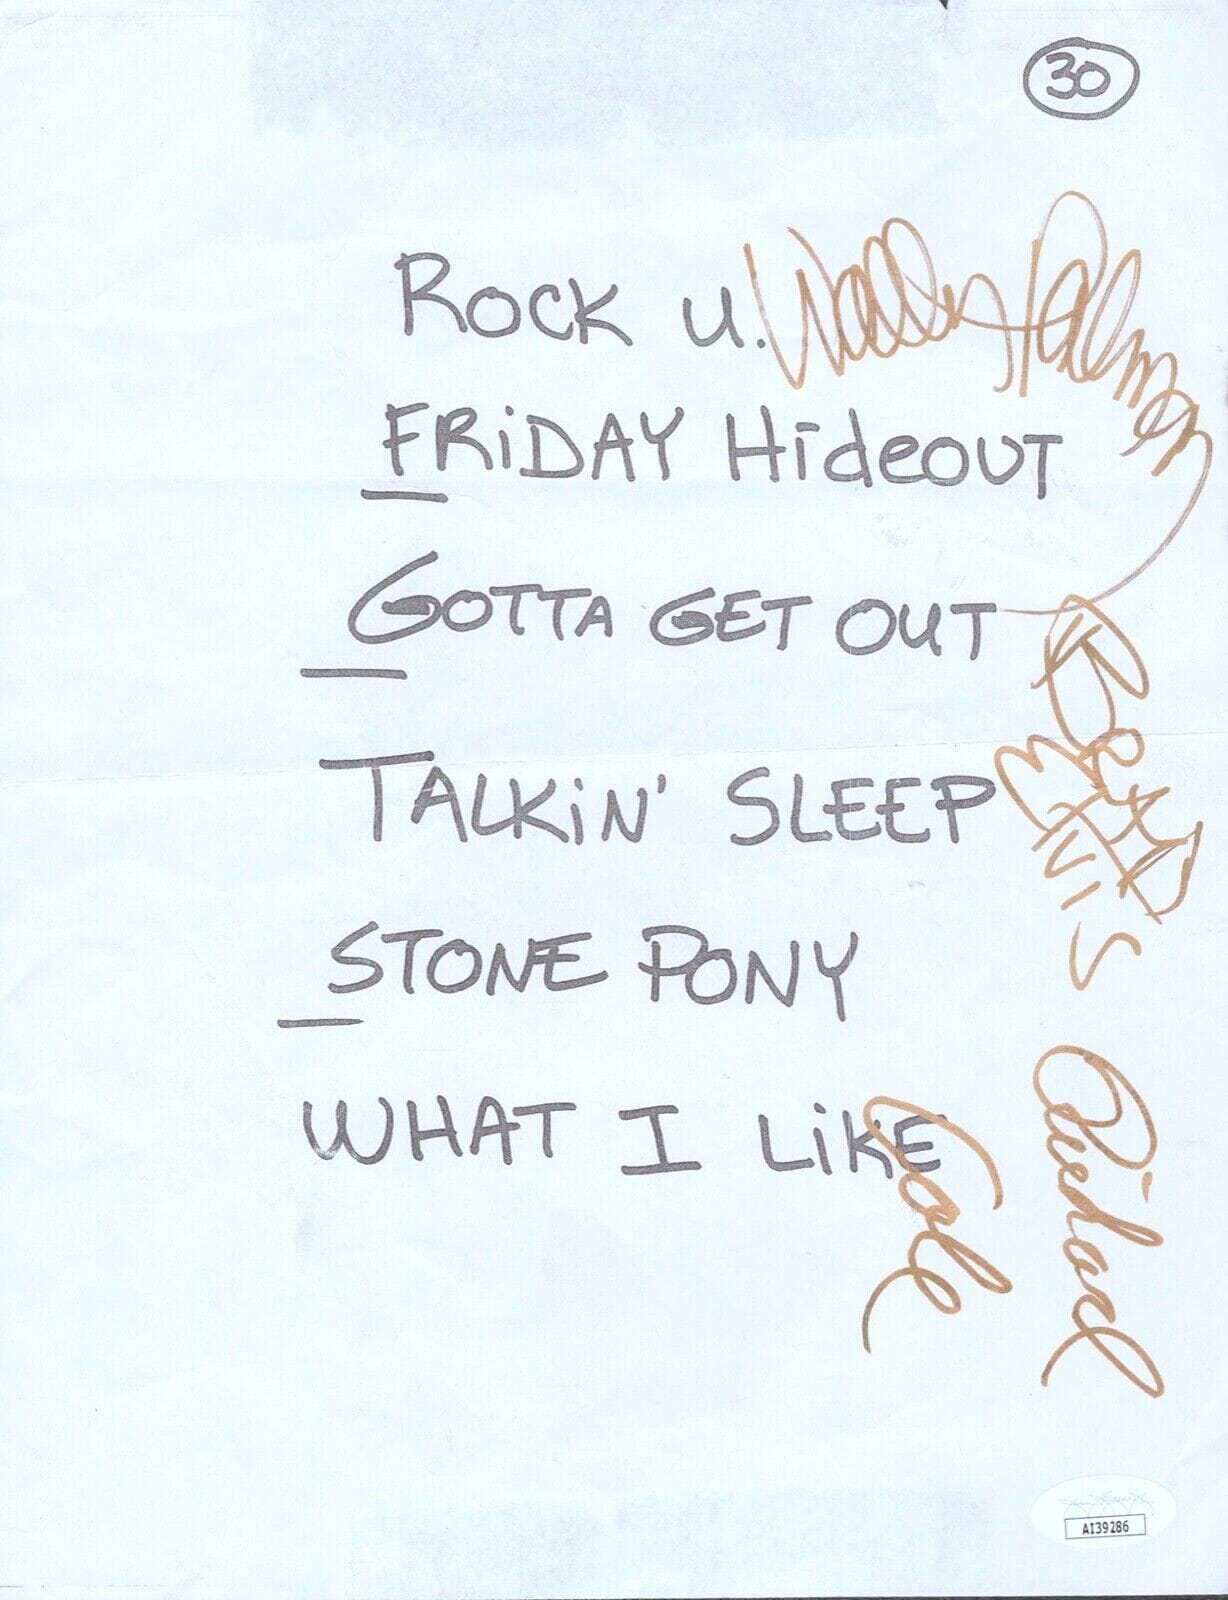 30
ROCK U.
FRiDAY Hideout
GOTTA GET OUT
TALKiN' SLEEP
STONE PONY
WHAT I LiKE
Wally Palmar
BRAD
ELVIS
Richard
Cole
AI39286